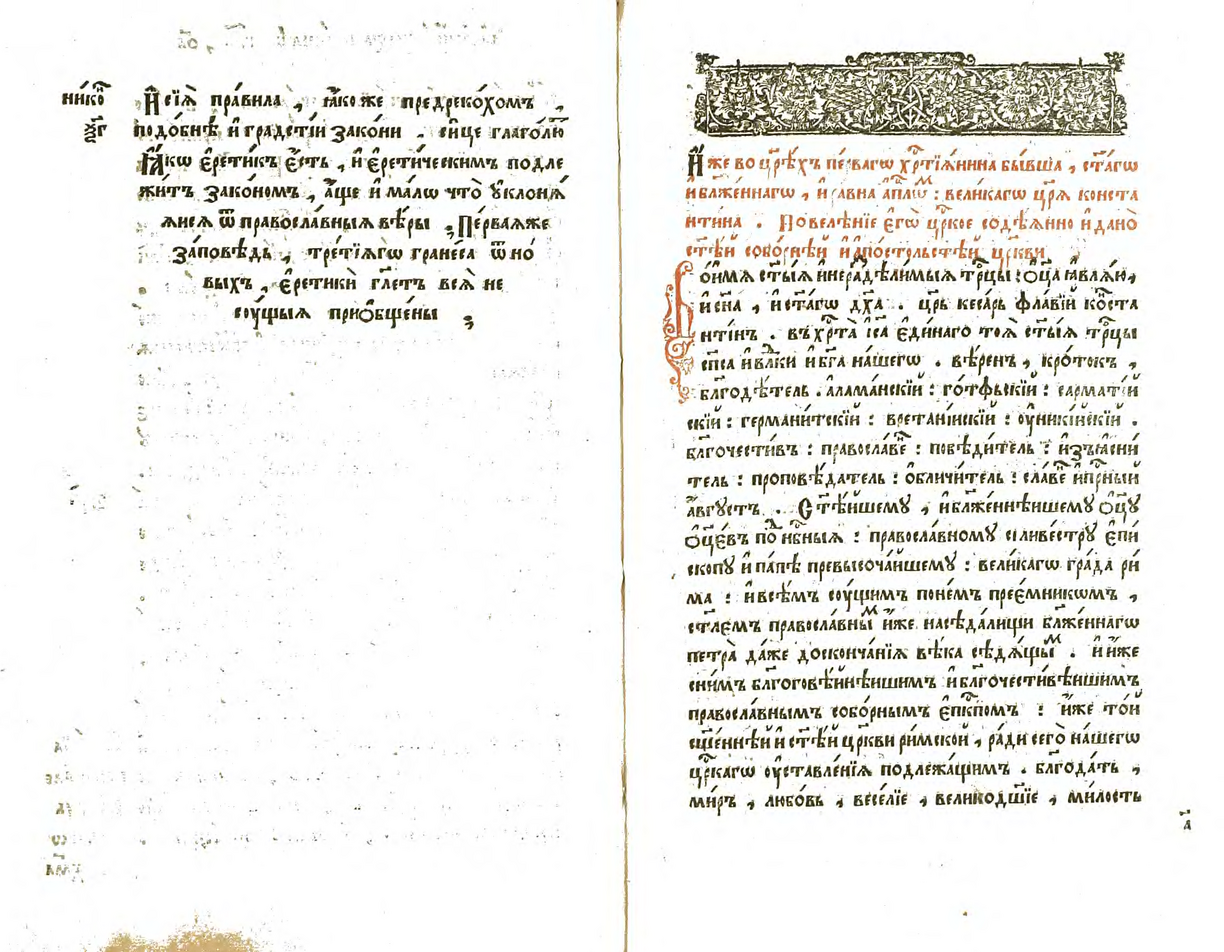 нико̑
и҆ сїѧ̀ пра́вила , ꙗ҆́коже предреко́хомъ ,
ѯ҃г
подо́бнѣ и҆ градсті́и зако́ни . си́це глаго́лю
Ꙗ҆́кѡ є҆рети́къ є҆́сть , и҆ є҆рети́ческимъ подле
жи́тъ зако́номъ , а҆́ще и҆ ма́лѡ что̀ ᲂу҆клонѧ́
ѧйсѧ ѿ правосла́вныѧ вѣ́ры , Пе́рваѧже
за́повѣдь , тре́тїѧгѡ гране́са ѿ но́
выхъ , є҆ретикѝ гл҃етъ всѧ̀ не
соу́щыѧ прио҆бще́ны ;
И҆́же во цр҃ѣ́хъ пе́рвагѡ хрⷭ҇тїѧ́нина бы́вша , ст҃а́гѡ
и҆ блаже́ннагѡ , и҆ ра́вна а҆пⷭ҇лѡⷨ : вели́кагѡ цр҃ѧ̀ конста
нти́на . Повелѣ́нїе є҆гѡ̀ црⷭ҇кое содѣ́ѧнно и҆ дано̀
ст҃ѣ́й собо́рнѣй и҆ а҆по́столстѣй цр҃кви
Во и҆́мѧ ст҃ы́ѧ и҆ нераздѣли́мыѧ трⷪ҇цы : ѻ҆ц҃а̀ ꙗ҆влѧ́ю ,
и҆ сн҃а , и҆ ст҃а́гѡ дх҃а . цр҃ь ке́сарь фла́вїй ко́ста
нті́нъ . въ хрⷭ҇та̀ і҆с҃а є҆ди́наго тоѧ̀ ст҃ы́ѧ трⷪ҇цы
сп҃са и҆ влⷣки и҆ бг҃а на́шегѡ . вѣ́ренъ , кро́токъ ,
бл҃годѣ́тель . а҆лама́нскїй : го́тѳьскїй : сарматі́й
скїй : германи́тскїй : вретані́йскїй : ᲂу҆никі́йскїй .
бл҃гочести́въ : правосла́веⷩ҇ : побѣди́тель : и҆зъꙗсни́
тель : проповѣ́датель : ѡ҆бличи́тель : сла́веⷩ҇ и҆ прⷭ҇ный
а҆́вгꙋстъ . Ст҃ѣ́йшемꙋ , и҆ блаже́ннѣйшемꙋ ѻ҆ц҃ꙋ̀
ѻ҆ц҃е́въ поⷣ нб҃ныѧ : правосла́вномꙋ сіливе́стрꙋ є҆пи́
скопꙋ и҆ па́пѣ превысоча́йшемꙋ : вели́кагѡ гра́да ри́
ма : и҆ всѣ́мъ соу́щимъ по не́мъ прее́мникѡмъ ,
ст҃лемъ правосла́вныⷨ и҆́же на сѣда́лищи бл҃же́ннагѡ
петра̀ да́же до сконча́нїѧ вѣ́ка сѣдѧ́щыⷨ . и҆ и҆́же
сни́мъ бл҃гоговѣ́йнѣйшимъ и҆ бл҃гочести́вѣйшимъ
правосла́внымъ собо́рнымъ є҆пⷭ҇кпомъ : и҆́же то́й
сщ҃е́ннѣй и҆ ст҃ѣ́й цр҃кви ри́мской , ра́ди сего̀ на́шегѡ
црⷭ҇кагѡ ᲂу҆ставле́нїѧ подлежа́щимъ . бл҃года́ть ,
ми́ръ , любо́вь , весе́лїе , великодш҃їе , ми́лость
а҃